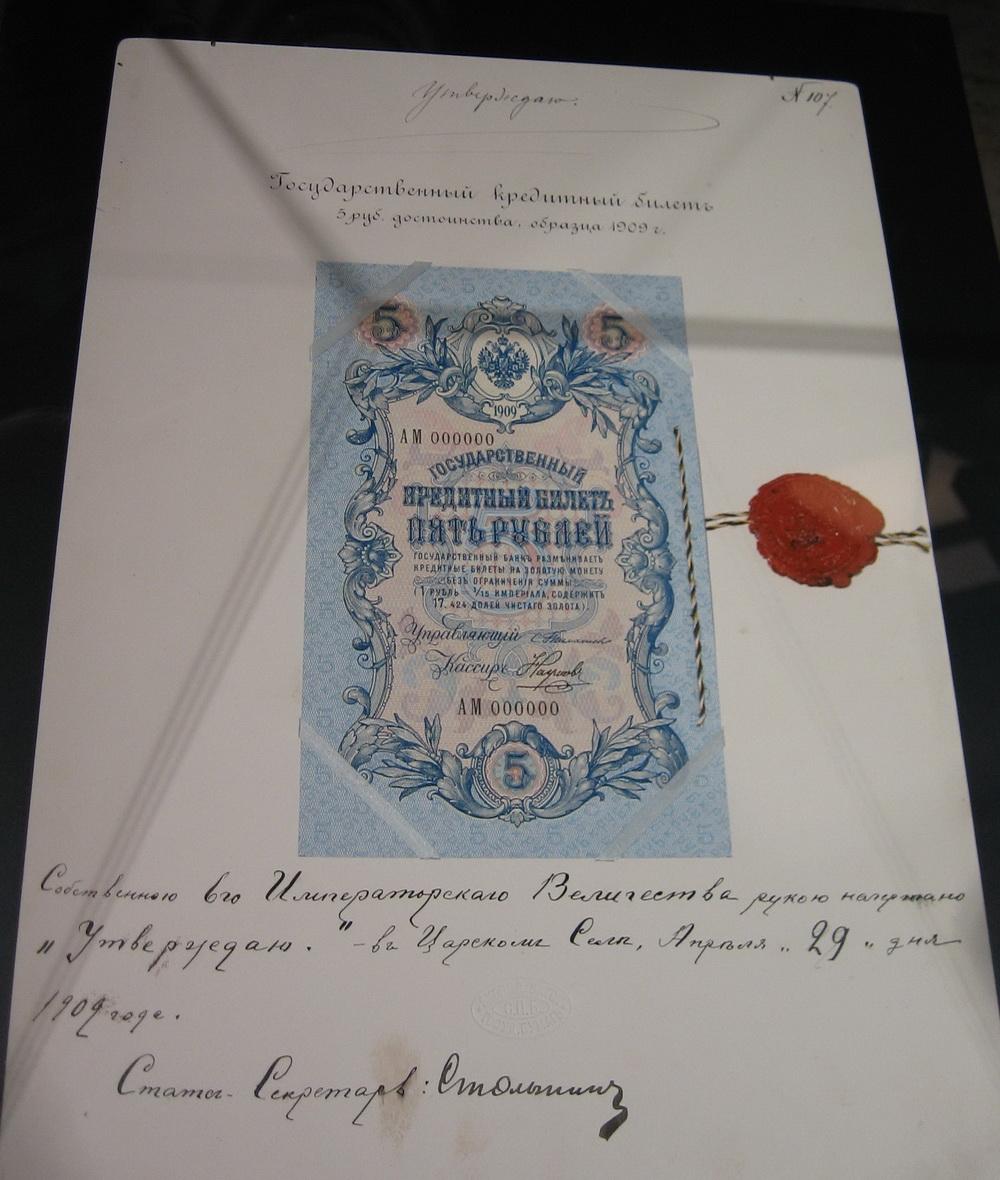 Утверждаю.
№ 107
Государственный кредитный билетъ
5 руб. достоинства, образца 1909 г.
5 5
1909
АМ 000000
ГОСУДАРСТВЕННЫЙ
КРЕДИТНЫЙ БИЛЕТЪ
ПЯТЬ РУБЛЕЙ
ГОСУДАРСТВЕННЫЙ БАНКЪ РАЗМѢНИВАЕТЪ
КРЕДИТНЫЕ БИЛЕТЫ НА ЗОЛОТУЮ МОНЕТУ
БЕЗЪ ОГРАНИЧЕНІЯ СУММЫ
(1 РУБЛЬ = 1/15 ИМПЕРІАЛА, СОДЕРЖИТЪ
17,424 ДОЛЕЙ ЧИСТАГО ЗОЛОТА).
Управляющій
Кассиръ Наумовъ
АМ 000000
5
Собственною Его Императорскаго Величества рукою начертано
„Утверждаю." - въ Царскомъ Селѣ, Апрѣля „29" дня
1909 года.
Статсъ-Секретарь: Столыпинъ